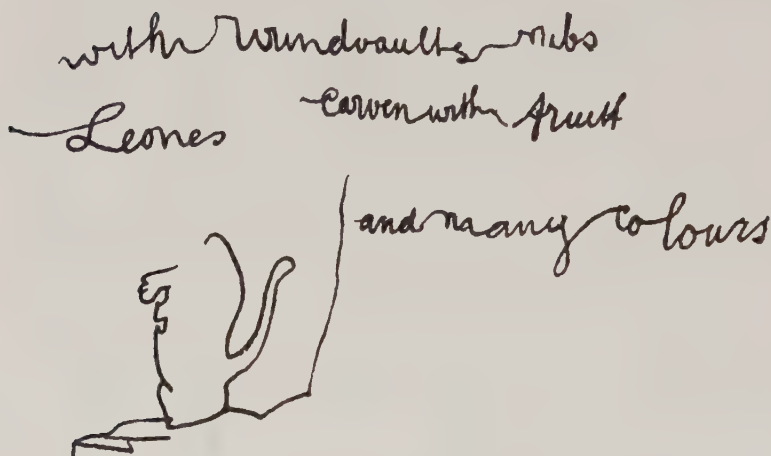 with Windvaults ribs
Leones carven with fruitt
and many colours